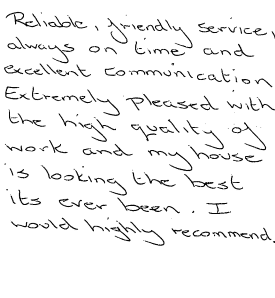 Reliable, friendly service,
always on time and
excellent communication
Extremely pleased with
the high quality of
work and my house
is looking the best
its ever been. I
would highly recommend.